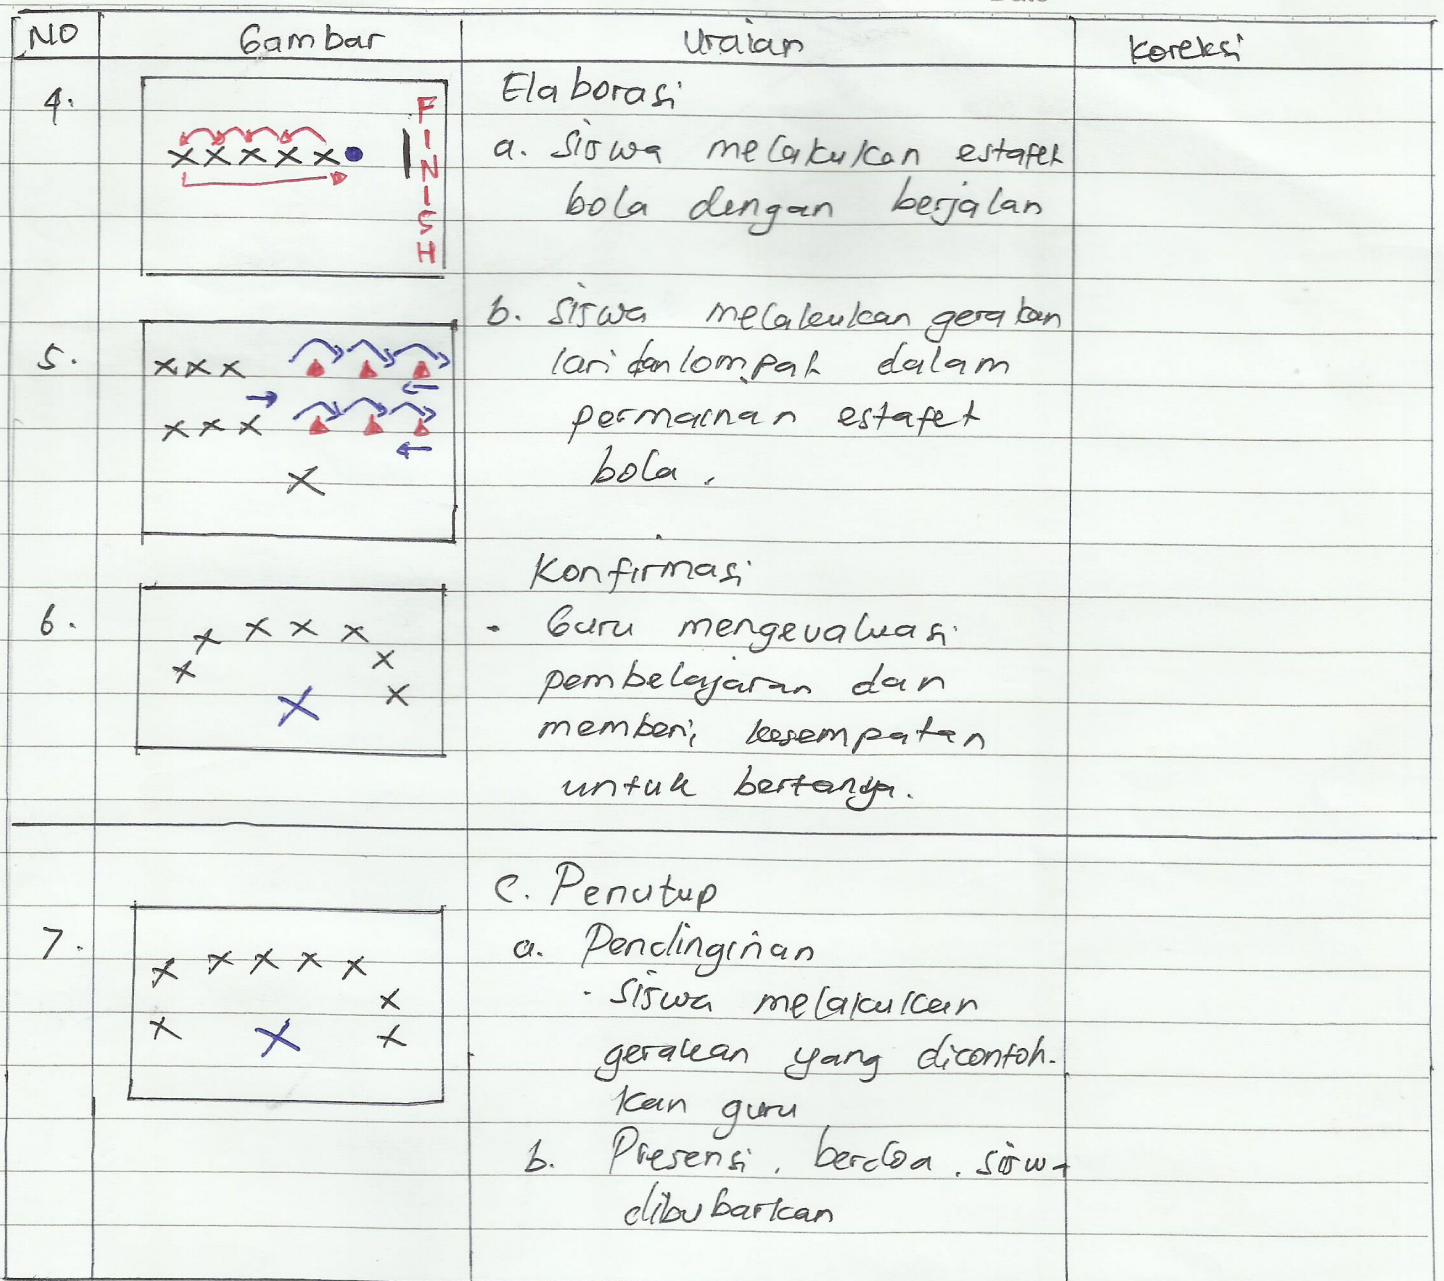 NO Gambar Uraian Koreksi
4.
FINISH
Elaborasi
a. Siswa melakukan estafet
bola dengan berjalan
5.
b. Siswa melakukan gerakan
lari dan lompat dalam
permainan estafet
bola.
Konfirmasi
6.
- Guru mengevaluasi
pembelajaran dan
memberi kesempatan
untuk bertanya.
C. Penutup
7.
a. Pendinginan
- Siswa melakukan
gerakan yang dicontoh-
kan guru
b. Presensi, berdoa, siswa
dibubarkan